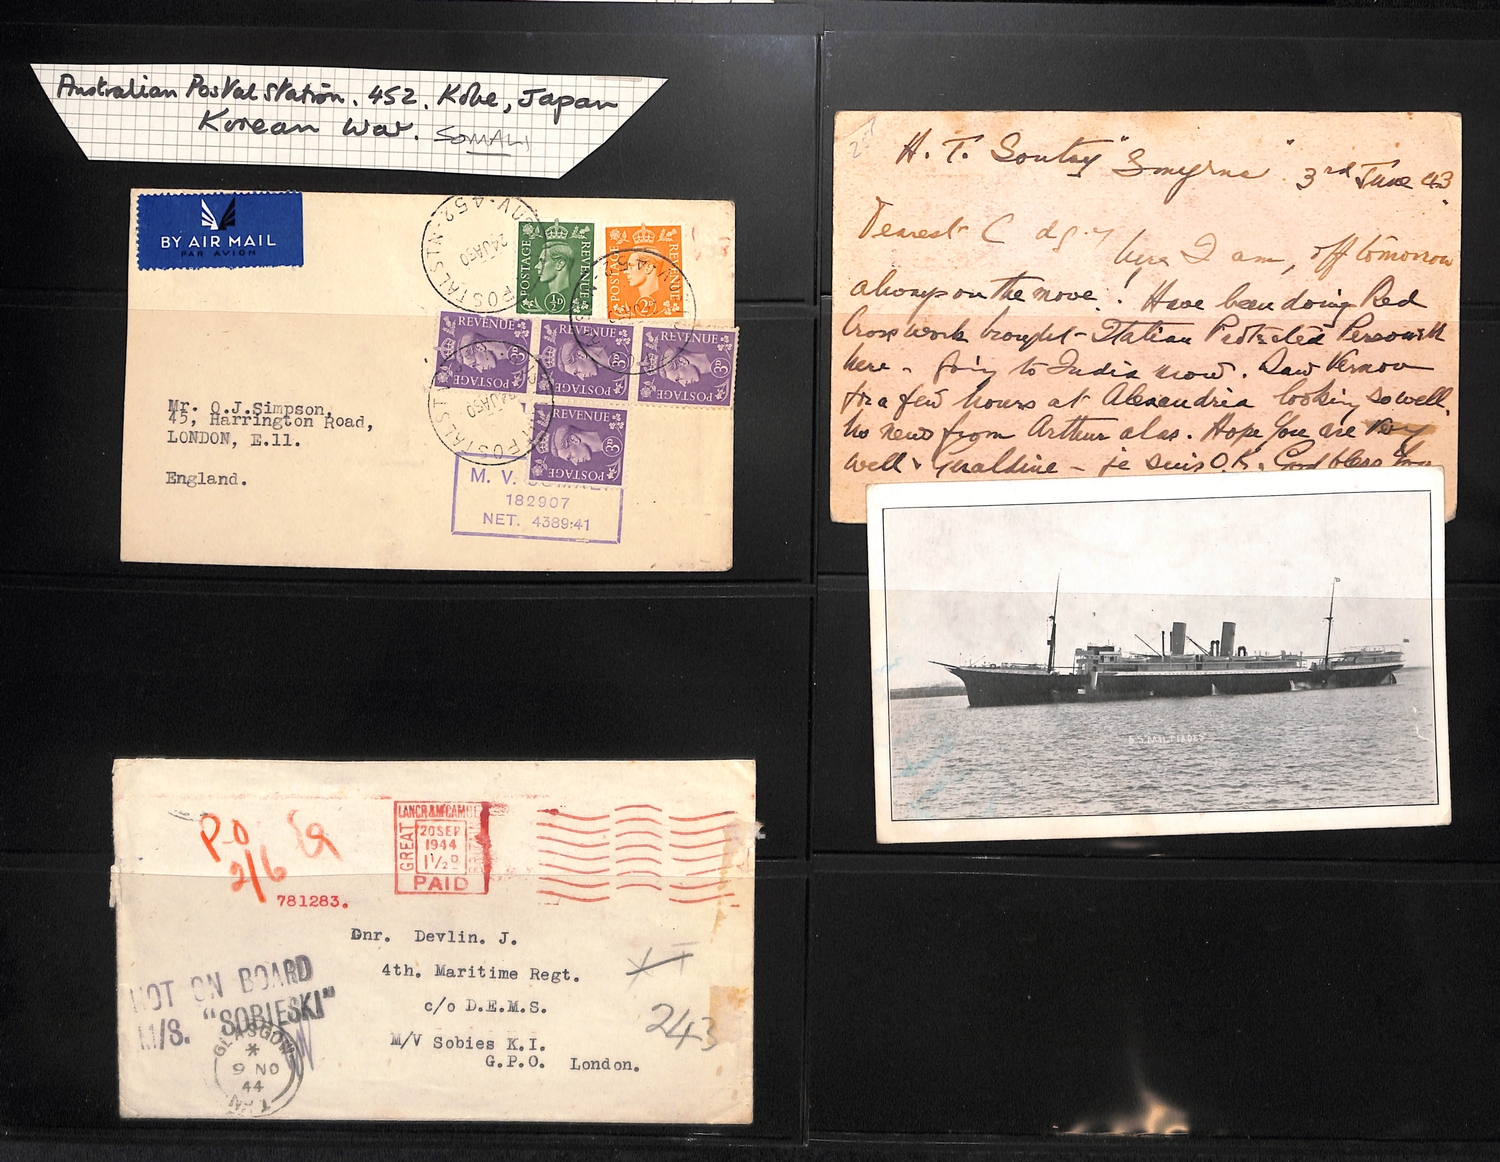 Australian Postal Station. 452. Kobe, Japan
Korean War. SOMALI
BY AIR MAIL
PAR AVION
POSTALSTN-452-
24JA50
POSTAGE REVENUE
½D
POSTAGE REVENUE
2D
REVENUE
3D
POSTAGE
REVENUE
3D
POSTAGE
REVENUE
3D
POSTAGE
REVENUE
3D
POSTAGE
Mr. O.J.Simpson,
45, Harrington Road,
LONDON, E.11.
England.
M. V.
182907
NET. 4389:41
H. T. "Smyrna" 3rd June 43
Dearest C
here I am, off tomorrow
always on the move! Have been doing Red
Cross work brought Italian Protected Personell
here - going to India now. Saw Vernon
for a few hours at Alexandria looking so well.
No news from Arthur alas. Hope you are very
well & Geraldine - je suis O.K. God bless you
S.S. MILTIADES
P.O
2/6
781283.
GREAT
20 SEP
1944
1½D
PAID
Gnr. Devlin. J.
4th. Maritime Regt.
c/o D.E.M.S.
M/V Sobies K.I.
G.P.O. London.
243
NOT ON BOARD
M/S. "SOBIESKI"
GLASGOW
9 NO
44